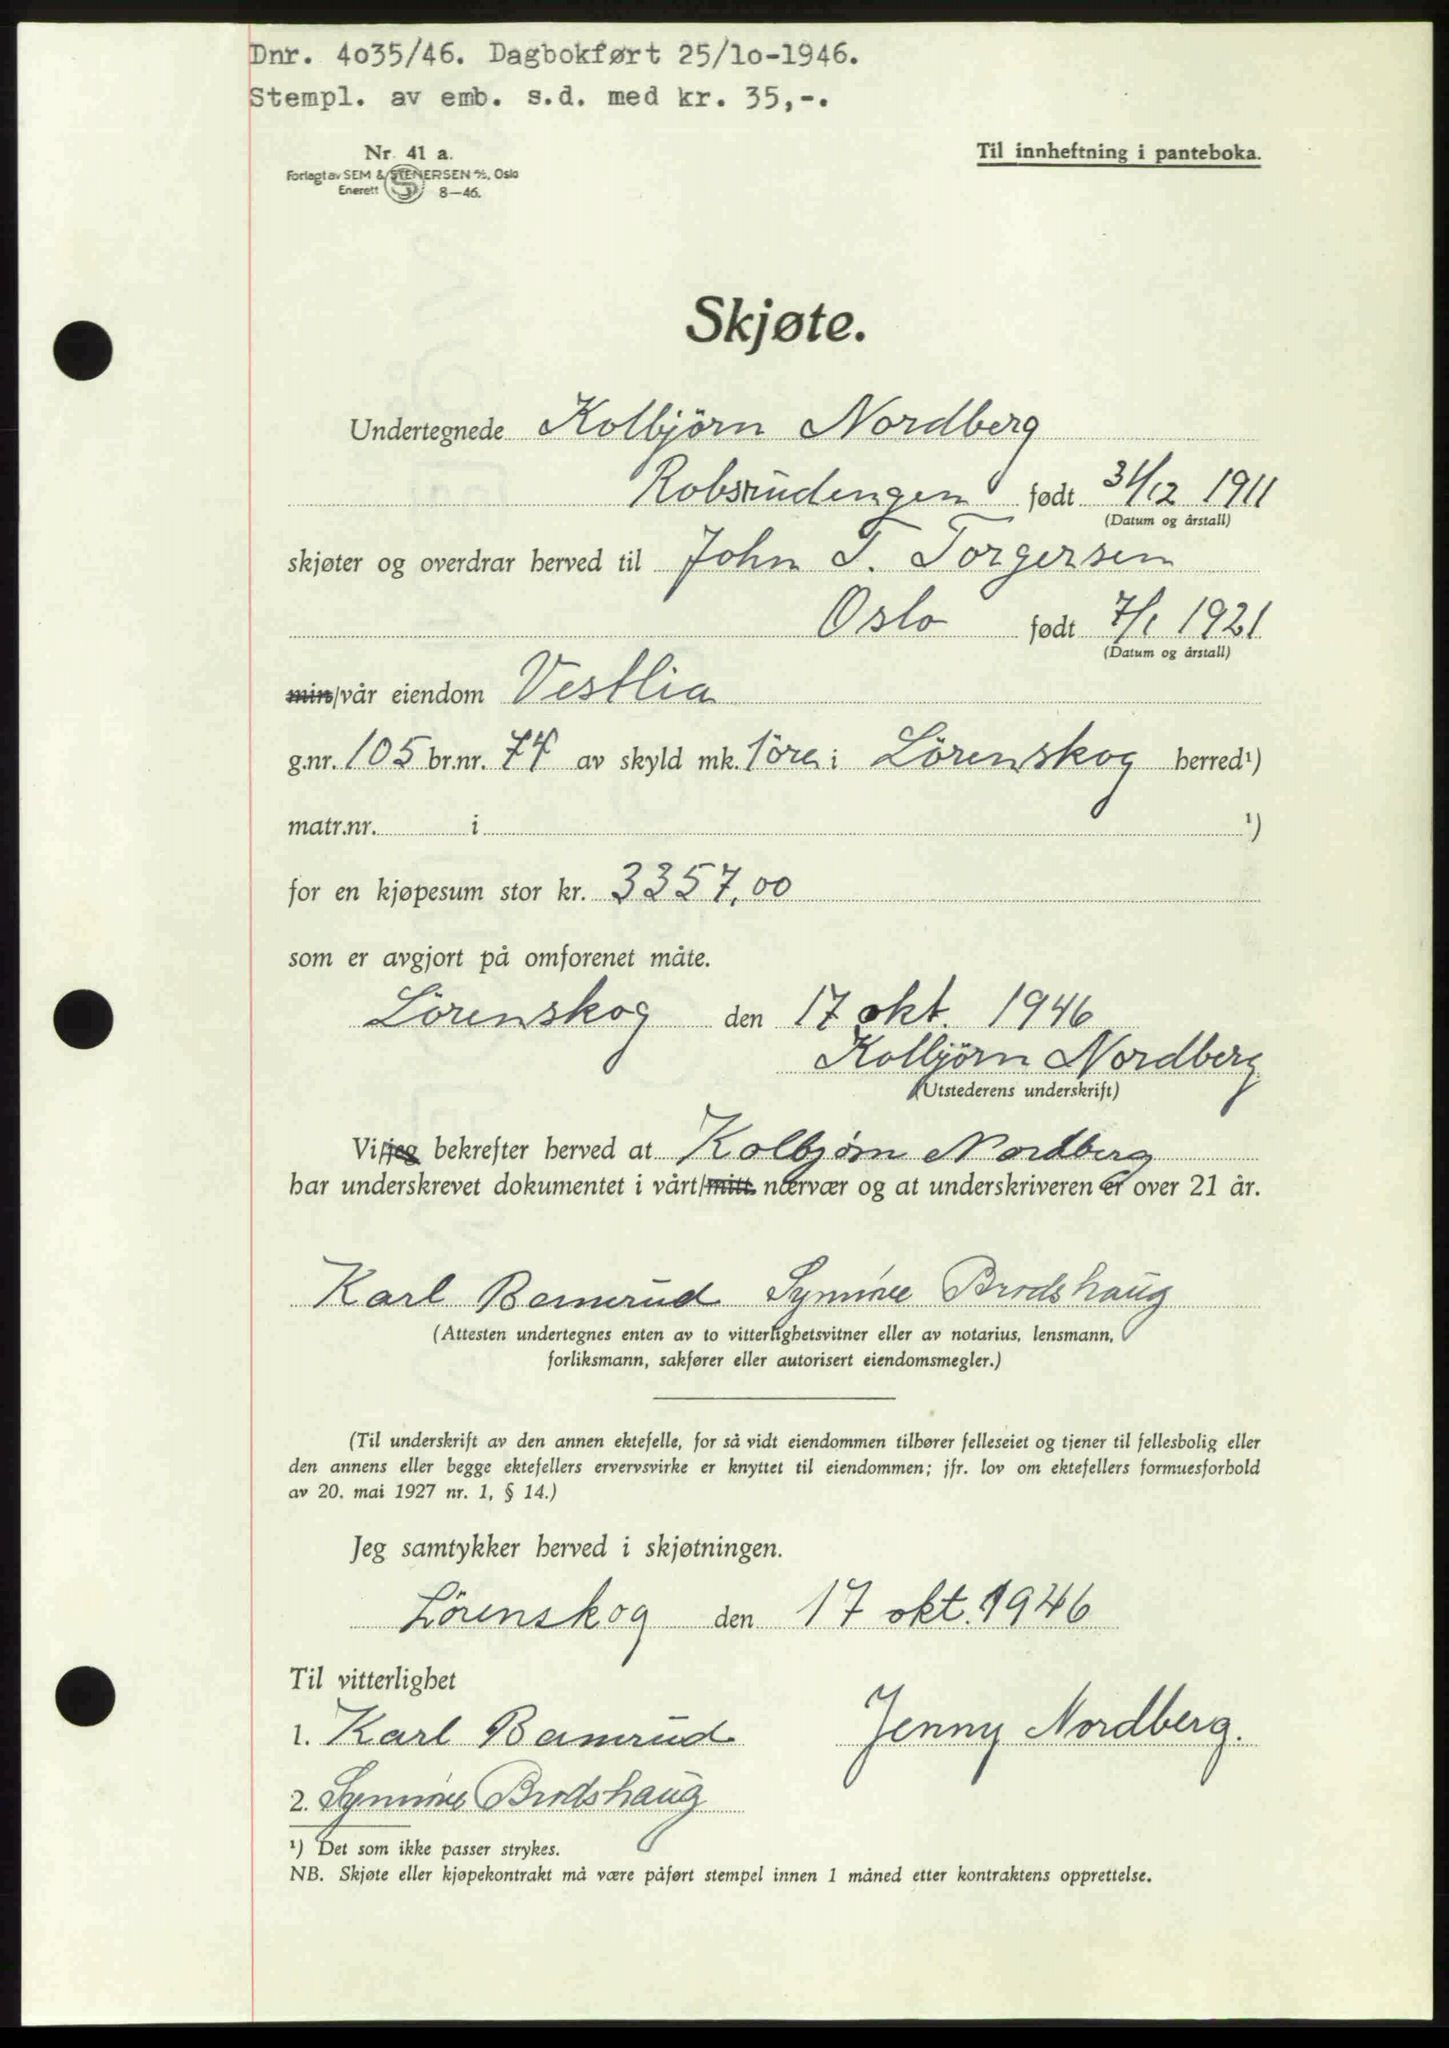 Dnr. 4o35/46. Dagbokført 25/lo-1946.
Stempl. av emb. s.d. med kr. 35,-.
Nr. 41 a.
Til innheftning i panteboka.
Forlagt av SEM & STENERSEN A/S, Oslo
Enerett S 8-46.
Skjøte.
Undertegnede Kolbjörn Nordberg
Robsrudengen født 31/12 1911
(Datum og årstall)
skjøter og overdrar herved til John T. Torgersen
Oslo født 7/1 1921
(Datum og årstall)
min/vår eiendom Vestlia
g.nr. 105 br.nr. 74 av skyld mk. 1öre i Lörenskog herred¹)
matr.nr. i ¹)
for en kjøpesum stor kr. 3357,00
som er avgjort på omforenet måte.
Lörenskog den 17 okt. 1946
Kolbjörn Nordberg
(Utstederens underskrift)
Vi/jeg bekrefter herved at Kolbjørn Nordberg
har underskrevet dokumentet i vårt/mitt nærvær og at underskriveren er over 21 år.
Karl Bamrud Synnöve Brodshaug
(Attesten undertegnes enten av to vitterlighetsvitner eller av notarius, lensmann,
forliksmann, sakfører eller autorisert eiendomsmegler.)
(Til underskrift av den annen ektefelle, for så vidt eiendommen tilhører felleseiet og tjener til fellesbolig eller
den annens eller begge ektefellers ervervsvirke er knyttet til eiendommen; jfr. lov om ektefellers formuesforhold
av 20. mai 1927 nr. 1, § 14.)
Jeg samtykker herved i skjøtningen.
Lörenskog den 17 okt. 1946
Til vitterlighet
1. Karl Bamrud Jenny Nordberg.
2. Synnöve Brodshaug
¹) Det som ikke passer strykes.
NB. Skjøte eller kjøpekontrakt må være påført stempel innen 1 måned etter kontraktens opprettelse.